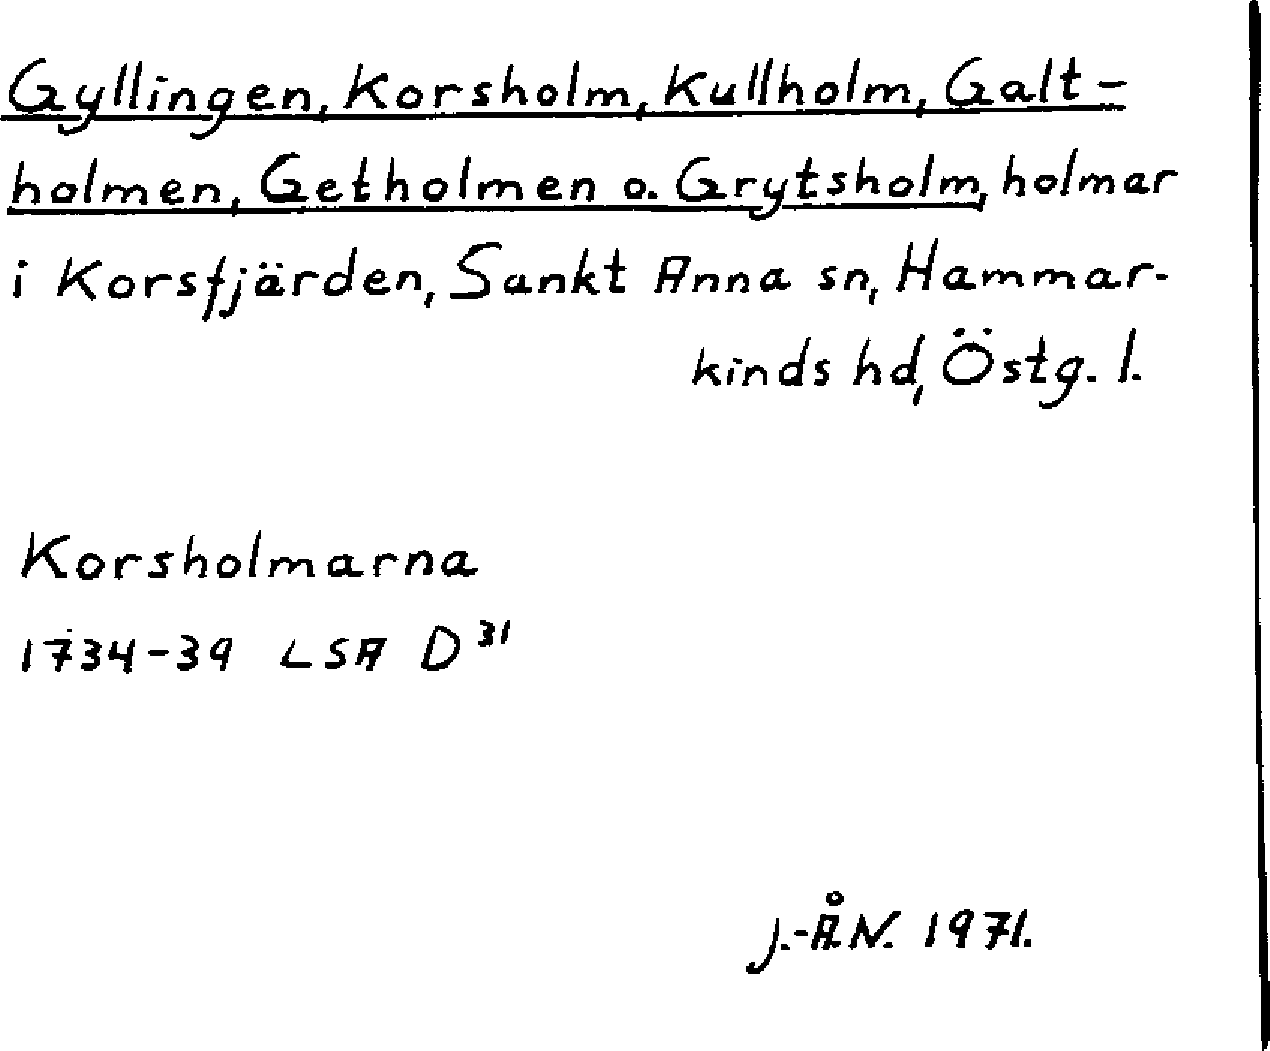 Gyllingen, Korsholm, Kullholm, Galt-
holmen, Getholmen o. Grytsholm, holmar
i Korsfjärden, Sankt Anna sn, Hammar-
kinds hd, Östg. l.
Korsholmarna
1734-39 LSA D³¹
J.-Å.N. 1971.